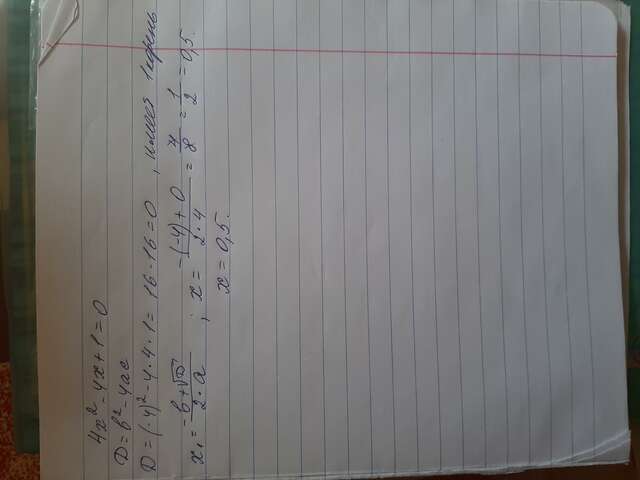 4x² - 4x + 1 = 0
D = b² - 4ac
D = (-4)² - 4·4·1 = 16 - 16 = 0, имеет 1 корень
x₁ = (-b + √D)/(2·a) ; x = (-(-4) + 0)/(2·4) = 4/8 = 1/2 = 0,5.
x = 0,5.